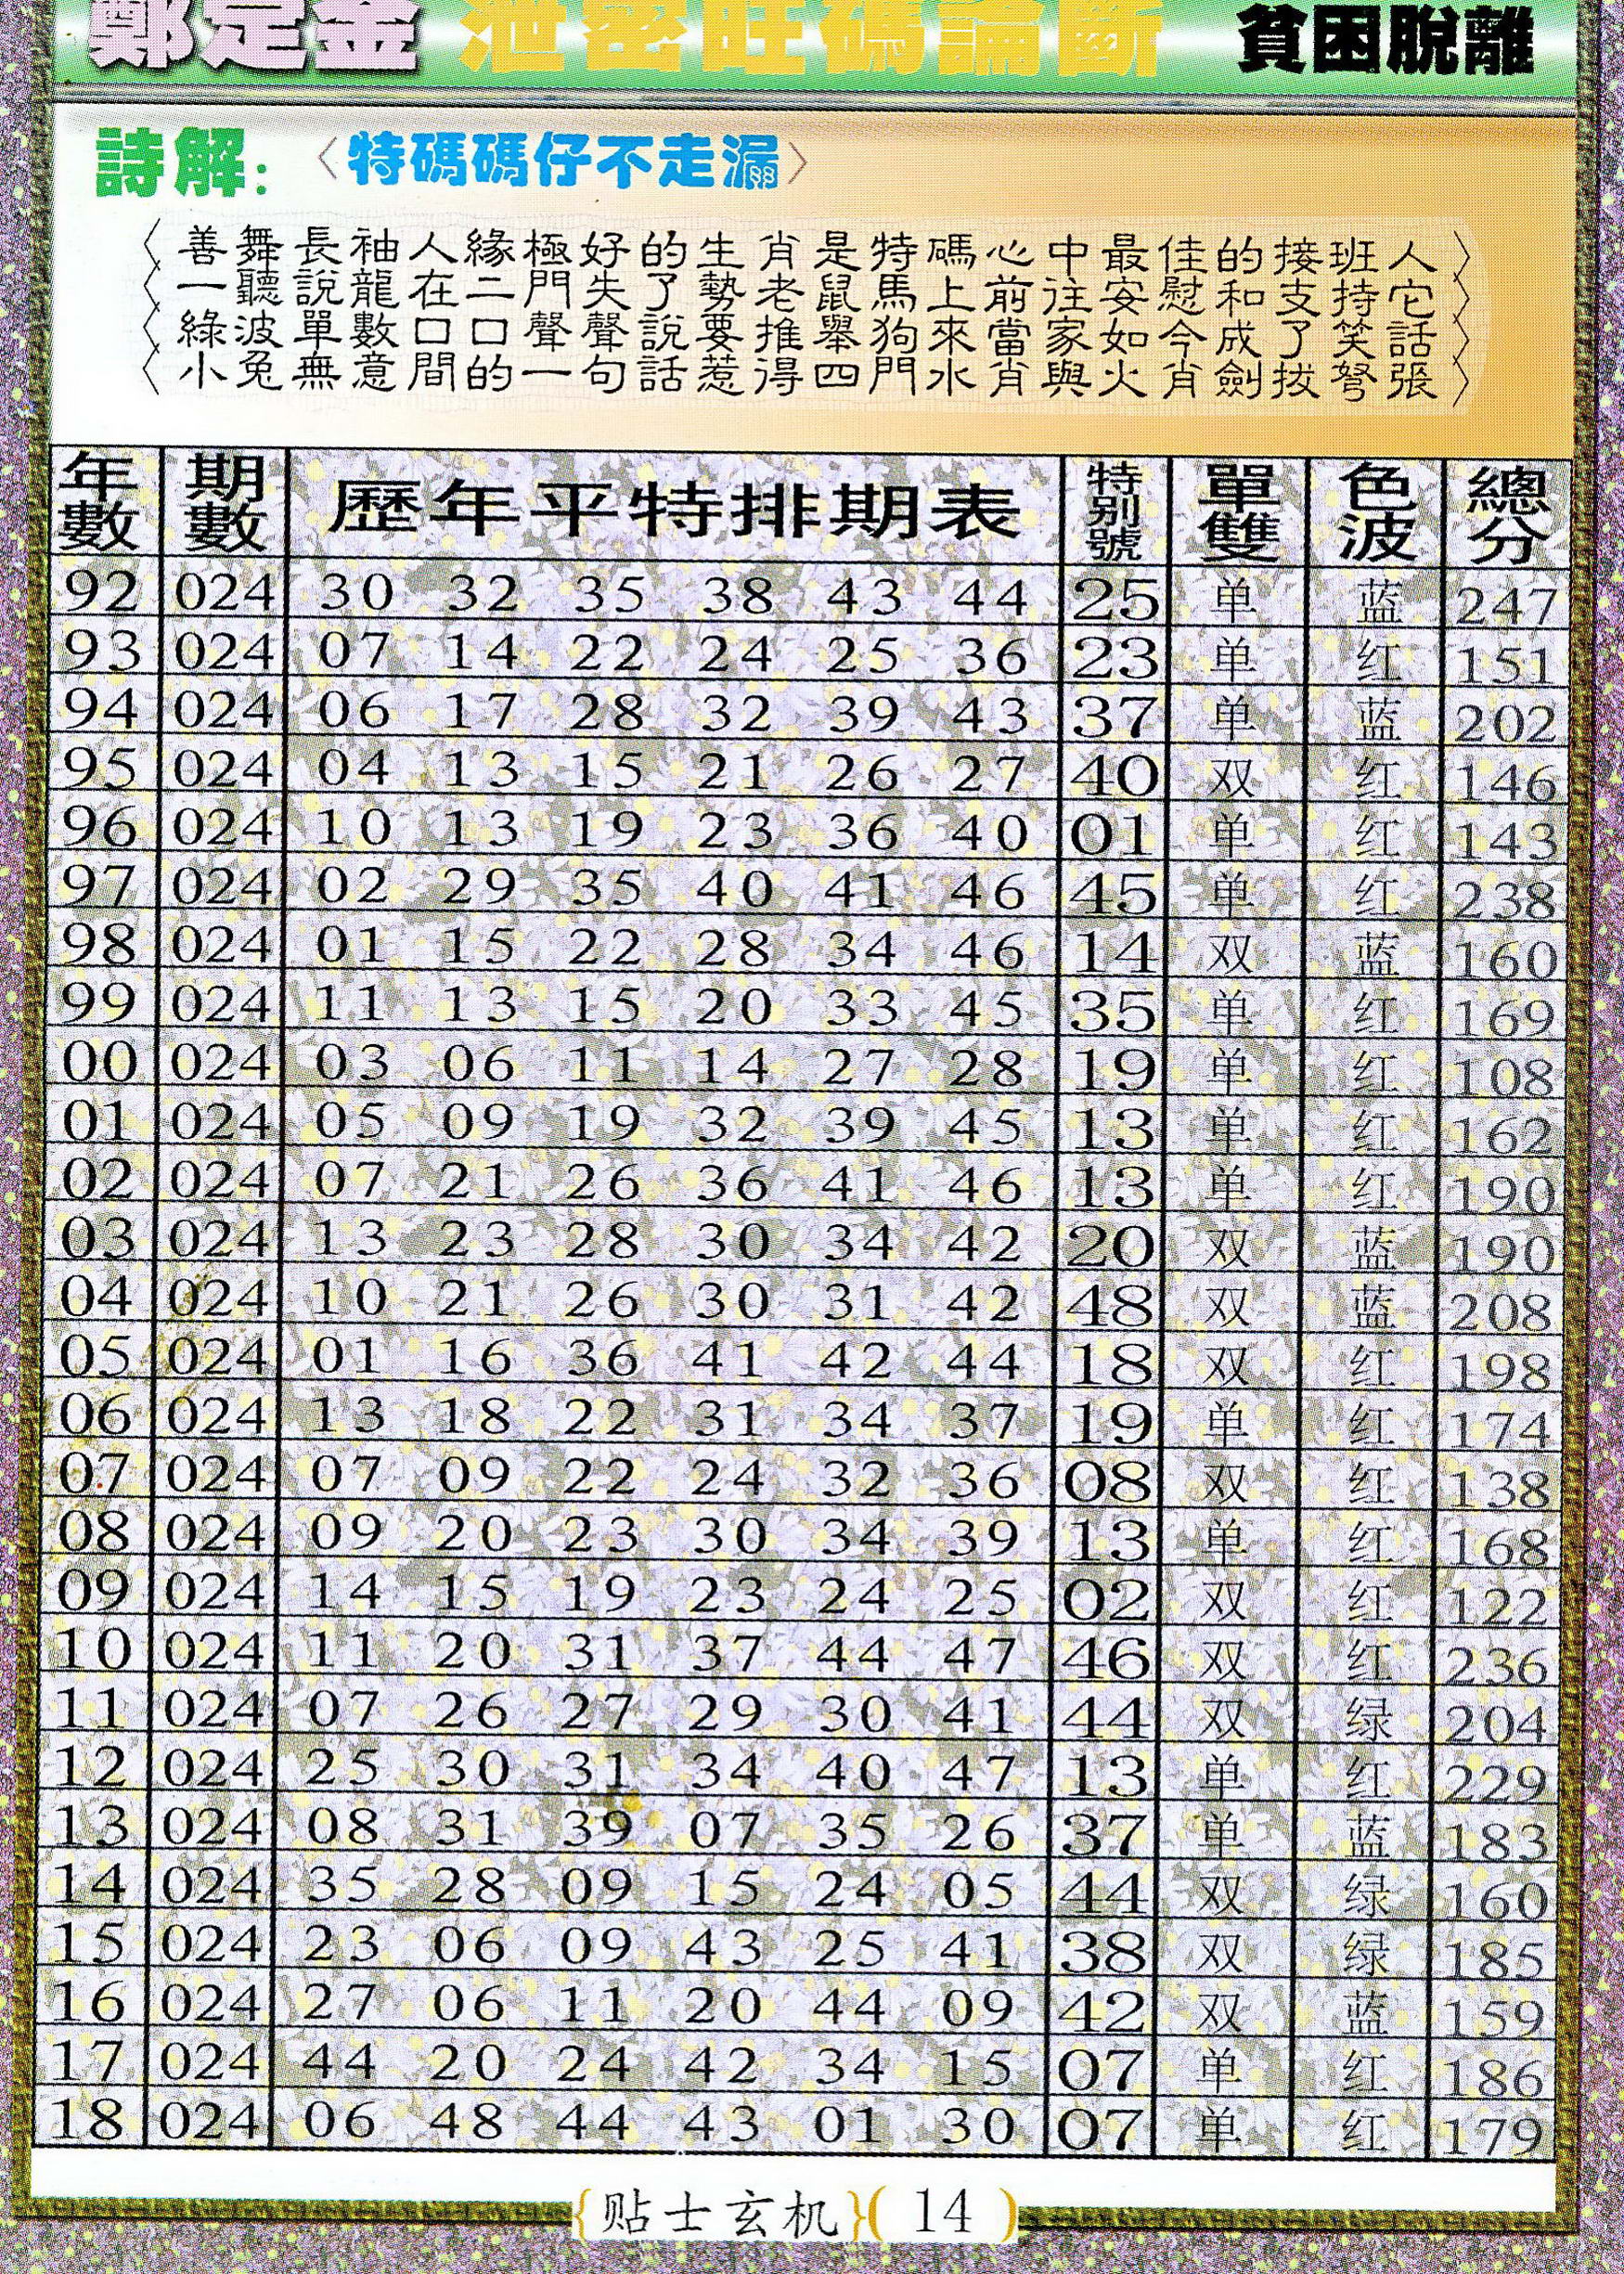 鄭定金 泄密旺碼論斷 貧困脫離
詩解：〈特碼碼仔不走漏〉
善舞長袖人緣極好的生肖是特碼心中最佳的接班人
一聽說龍在二門失了勢老鼠馬上前往安慰和支持它
綠波單數口口聲聲說要推舉狗來當家如今成了笑話
小兔無意間的一句話惹得四門水肖與火肖劍拔弩張
年數 期數 歷年平特排期表 特别號 單雙 色波 總分
92 024 30 32 35 38 43 44 25 单 蓝 247
93 024 07 14 22 24 25 36 23 单 红 151
94 024 06 17 28 32 39 43 37 单 蓝 202
95 024 04 13 15 21 26 27 40 双 红 146
96 024 10 13 19 23 36 40 01 单 红 143
97 024 02 29 35 40 41 46 45 单 红 238
98 024 01 15 22 28 34 46 14 双 蓝 160
99 024 11 13 15 20 33 45 35 单 红 169
00 024 03 06 11 14 27 28 19 单 红 108
01 024 05 09 19 32 39 45 13 单 红 162
02 024 07 21 26 36 41 46 13 单 红 190
03 024 13 23 28 30 34 42 20 双 蓝 190
04 024 10 21 26 30 31 42 48 双 蓝 208
05 024 01 16 36 41 42 44 18 双 红 198
06 024 13 18 22 31 34 37 19 单 红 174
07 024 07 09 22 24 32 36 08 双 红 138
08 024 09 20 23 30 34 39 13 单 红 168
09 024 14 15 19 23 24 25 02 双 红 122
10 024 11 20 31 37 44 47 46 双 红 236
11 024 07 26 27 29 30 41 44 双 绿 204
12 024 25 30 31 34 40 47 13 单 红 229
13 024 08 31 39 07 35 26 37 单 蓝 183
14 024 35 28 09 15 24 05 44 双 绿 160
15 024 23 06 09 43 25 41 38 双 绿 185
16 024 27 06 11 20 44 09 42 双 蓝 159
17 024 44 20 24 42 34 15 07 单 红 186
18 024 06 48 44 43 01 30 07 单 红 179
{贴士玄机}(14)